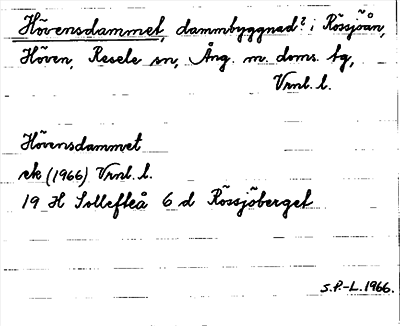 Hövensdammet, dammbyggnad? i Rössjöån,
Höven, Resele sn, Ång. m. doms. tg,
Vrnl. l.
Hövensdammet
ek (1966) Vrnl. l.
19 H Sollefteå 6 d Rössjöberget
S.P.-L. 1966.